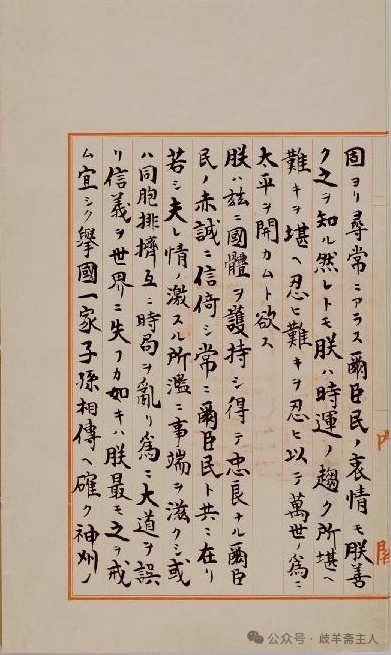 固ヨリ尋常ニアラス爾臣民ノ衷情モ朕善
ク之ヲ知ル然レトモ朕ハ時運ノ趨ク所堪ヘ
難キヲ堪ヘ忍ヒ難キヲ忍ヒ以テ萬世ノ爲ニ
太平ヲ開カムト欲ス
朕ハ玆ニ國體ヲ護持シ得テ忠良ナル爾臣
民ノ赤誠ニ信倚シ常ニ爾臣民ト共ニ在リ
若シ夫レ情ノ激スル所濫ニ事端ヲ滋クシ或
ハ同胞排擠互ニ時局ヲ亂リ爲ニ大道ヲ誤
リ信義ヲ世界ニ失フカ如キハ朕最モ之ヲ戒
ム宜シク擧國一家子孫相傳ヘ確ク神州ノ
公众号 · 歧羊斋主人